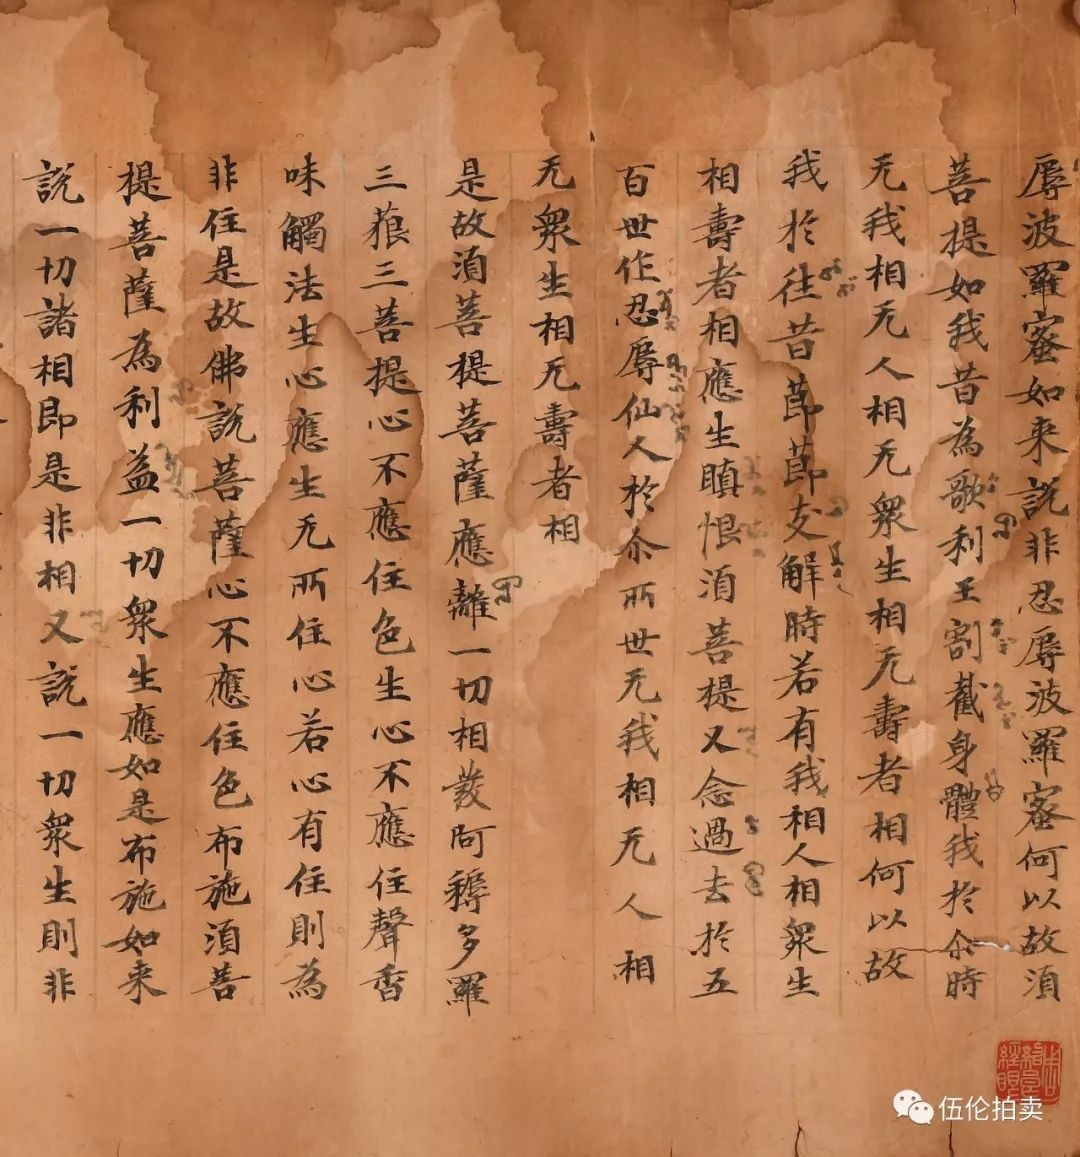 辱波羅蜜如来說非忍辱波羅蜜何以故湏
菩提如我昔為歌利王割截身體我於尒時
无我相无人相无衆生相无壽者相何以故
我於往昔莭莭支解時若有我相人相衆生
相壽者相應生瞋恨湏菩提又念過去於五
百世作忍辱仙人於尒所世无我相无人相
无衆生相无壽者相
是故湏菩提菩薩應離一切相發阿耨多羅
三藐三菩提心不應住色生心不應住聲香
味觸法生心應生无所住心若心有住則為
非住是故佛說菩薩心不應住色布施湏菩
提菩薩為利益一切衆生應如是布施如来
說一切諸相即是非相又說一切衆生則非
伍伦拍卖